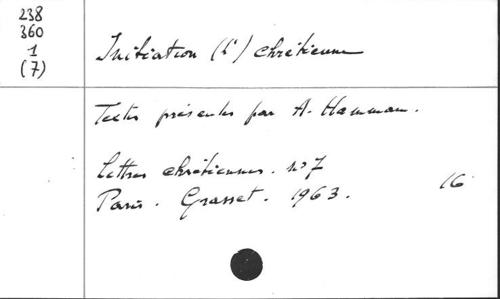 238
360
1
(7)
Initiation (l') chrétienne
Textes présentés par A. Hamman.
Lettres chrétiennes. n° 7
Paris. Grasset. 1963.
16